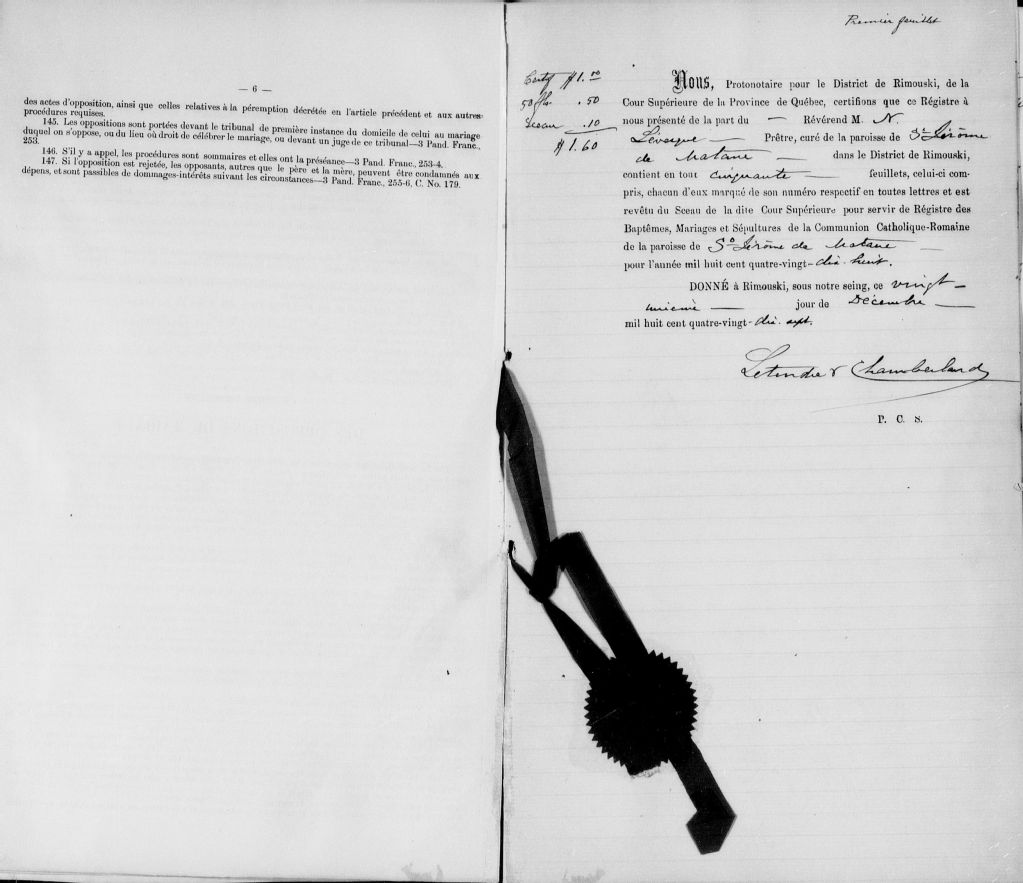 — 6 —
des actes d'opposition, ainsi que celles relatives à la péremption décrétée en l'article précédent et aux autres
procédures requises.
145. Les oppositions sont portées devant le tribunal de première instance du domicile de celui au mariage
duquel on s'oppose, ou du lieu où droit de célébrer le mariage, ou devant un juge de ce tribunal—3 Pand. Franc.,
253.
146. S'il y a appel, les procédures sont sommaires et elles ont la préséance—3 Pand. Franc., 253-4.
147. Si l'opposition est rejetée, les opposants, autres que le père et la mère, peuvent être condamnés aux
dépens, et sont passibles de dommages-intérêts suivant les circonstances—3 Pand. Franc., 255-6, C. No. 179.
Premier feuillet
Certf $1.00
50 ffts .50
Sceau .10
$1.60
Nous, Protonotaire pour le District de Rimouski, de la
Cour Supérieure de la Province de Québec, certifions que ce Régistre à
nous présenté de la part du — Révérend M. N.
Lévesque — Prêtre, curé de la paroisse de St Jérôme
de Matane — dans le District de Rimouski,
contient en tout cinquante — feuillets, celui-ci com-
pris, chacun d'eux marqué de son numéro respectif en toutes lettres et est
revêtu du Sceau de la dite Cour Supérieure pour servir de Régistre des
Baptêmes, Mariages et Sépultures de la Communion Catholique-Romaine
de la paroisse de St Jérôme de Matane —
pour l'année mil huit cent quatre-vingt-dix-huit.
DONNÉ à Rimouski, sous notre seing, ce vingt-
unième — jour de Décembre —
mil huit cent quatre-vingt-dix-sept.
Letendre & Chamberland
P. C. S.